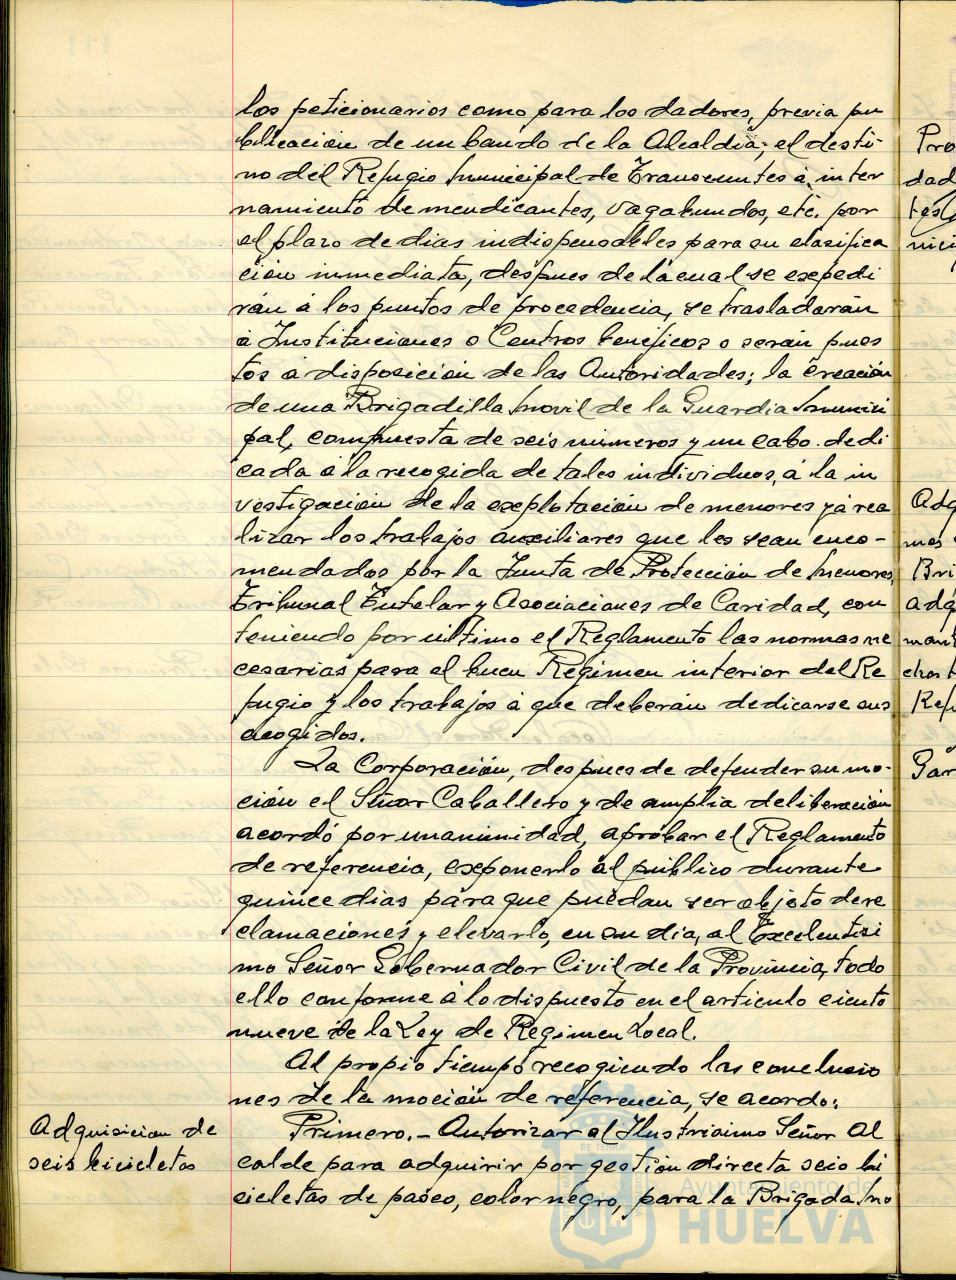 los peticionarios como para los dadores, previa pu
blicación de un bando de la Alcaldia; el desti-
no del Refugio Municipal de Transeuntes á inter
namiento de mendicantes, vagabundos, etc. por
el plazo de dias indispensables para su clasifica
ción inmediata, despues de la cual se expedi
rán á los puntos de procedencia, se trasladarán
a Instituciones o Centros benéficos o serán pues
tos a disposición de las Autoridades; la creación
de una Brigadilla Movil de la Guardia Munici
pal, compuesta de seis números y un cabo dedi
cada á la recogida de tales individuos, á la in
vestigación de la explotación de menores y á rea
lizar los trabajos auxiliares que les sean enco-
mendados por la Junta de Protección de Menores,
Tribunal Tutelar y Asociaciones de Caridad, con
teniendo por último el Reglamento las normas ne
cesarias para el buen Régimen interior del Re
fugio y los trabajos á que deberán dedicarse sus
acogidos.
La Corporación, despues de defender su mo-
ción el Señor Caballero y de amplia deliberación
acordó por unanimidad, aprobar el Reglamento
de referencia, exponerlo al público durante
quince dias para que puedan ser objeto de re
clamaciones y elevarlo, en su dia, al Excelentisi
mo Señor Gobernador Civil de la Provincia, todo
ello conforme á lo dispuesto en el articulo ciento
nueve de la Ley de Regimen Local.
Al propio tiempo recogiendo las conclusio
nes de la moción de referencia, se acordo:
Adquisicion de
seis bicicletas
Primero.- Autorizar al Ilustrisimo Señor Al
calde para adquirir por gestión directa seis bi
cicletas de paseo, color negro, para la Brigada Mo
Pro
dad
tes
nici
Adq
mas
Bri
adq
man
chas
Ref
Gar
Ayuntamiento de
HUELVA